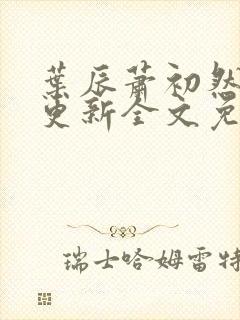 葉辰蕭初然
更新全文免
瑞士哈姆雷特